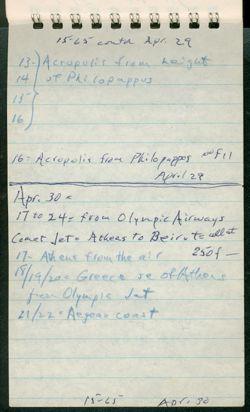 15-65 contd Apr. 29
13 - Acropolis from height
14 of Philopappus
15
16
16: Acropolis from Philopappos ∞ F11
April 29
Apr. 30 -
17 to 24 = from Olympic Airways
Comet Jet = Athens to Beirut all at
17 - Athens from the air 250 f —
18/19/20 = Greece se of Athens
from Olympic Jet
21/22 = Aegean coast
15-65 Apr. 30